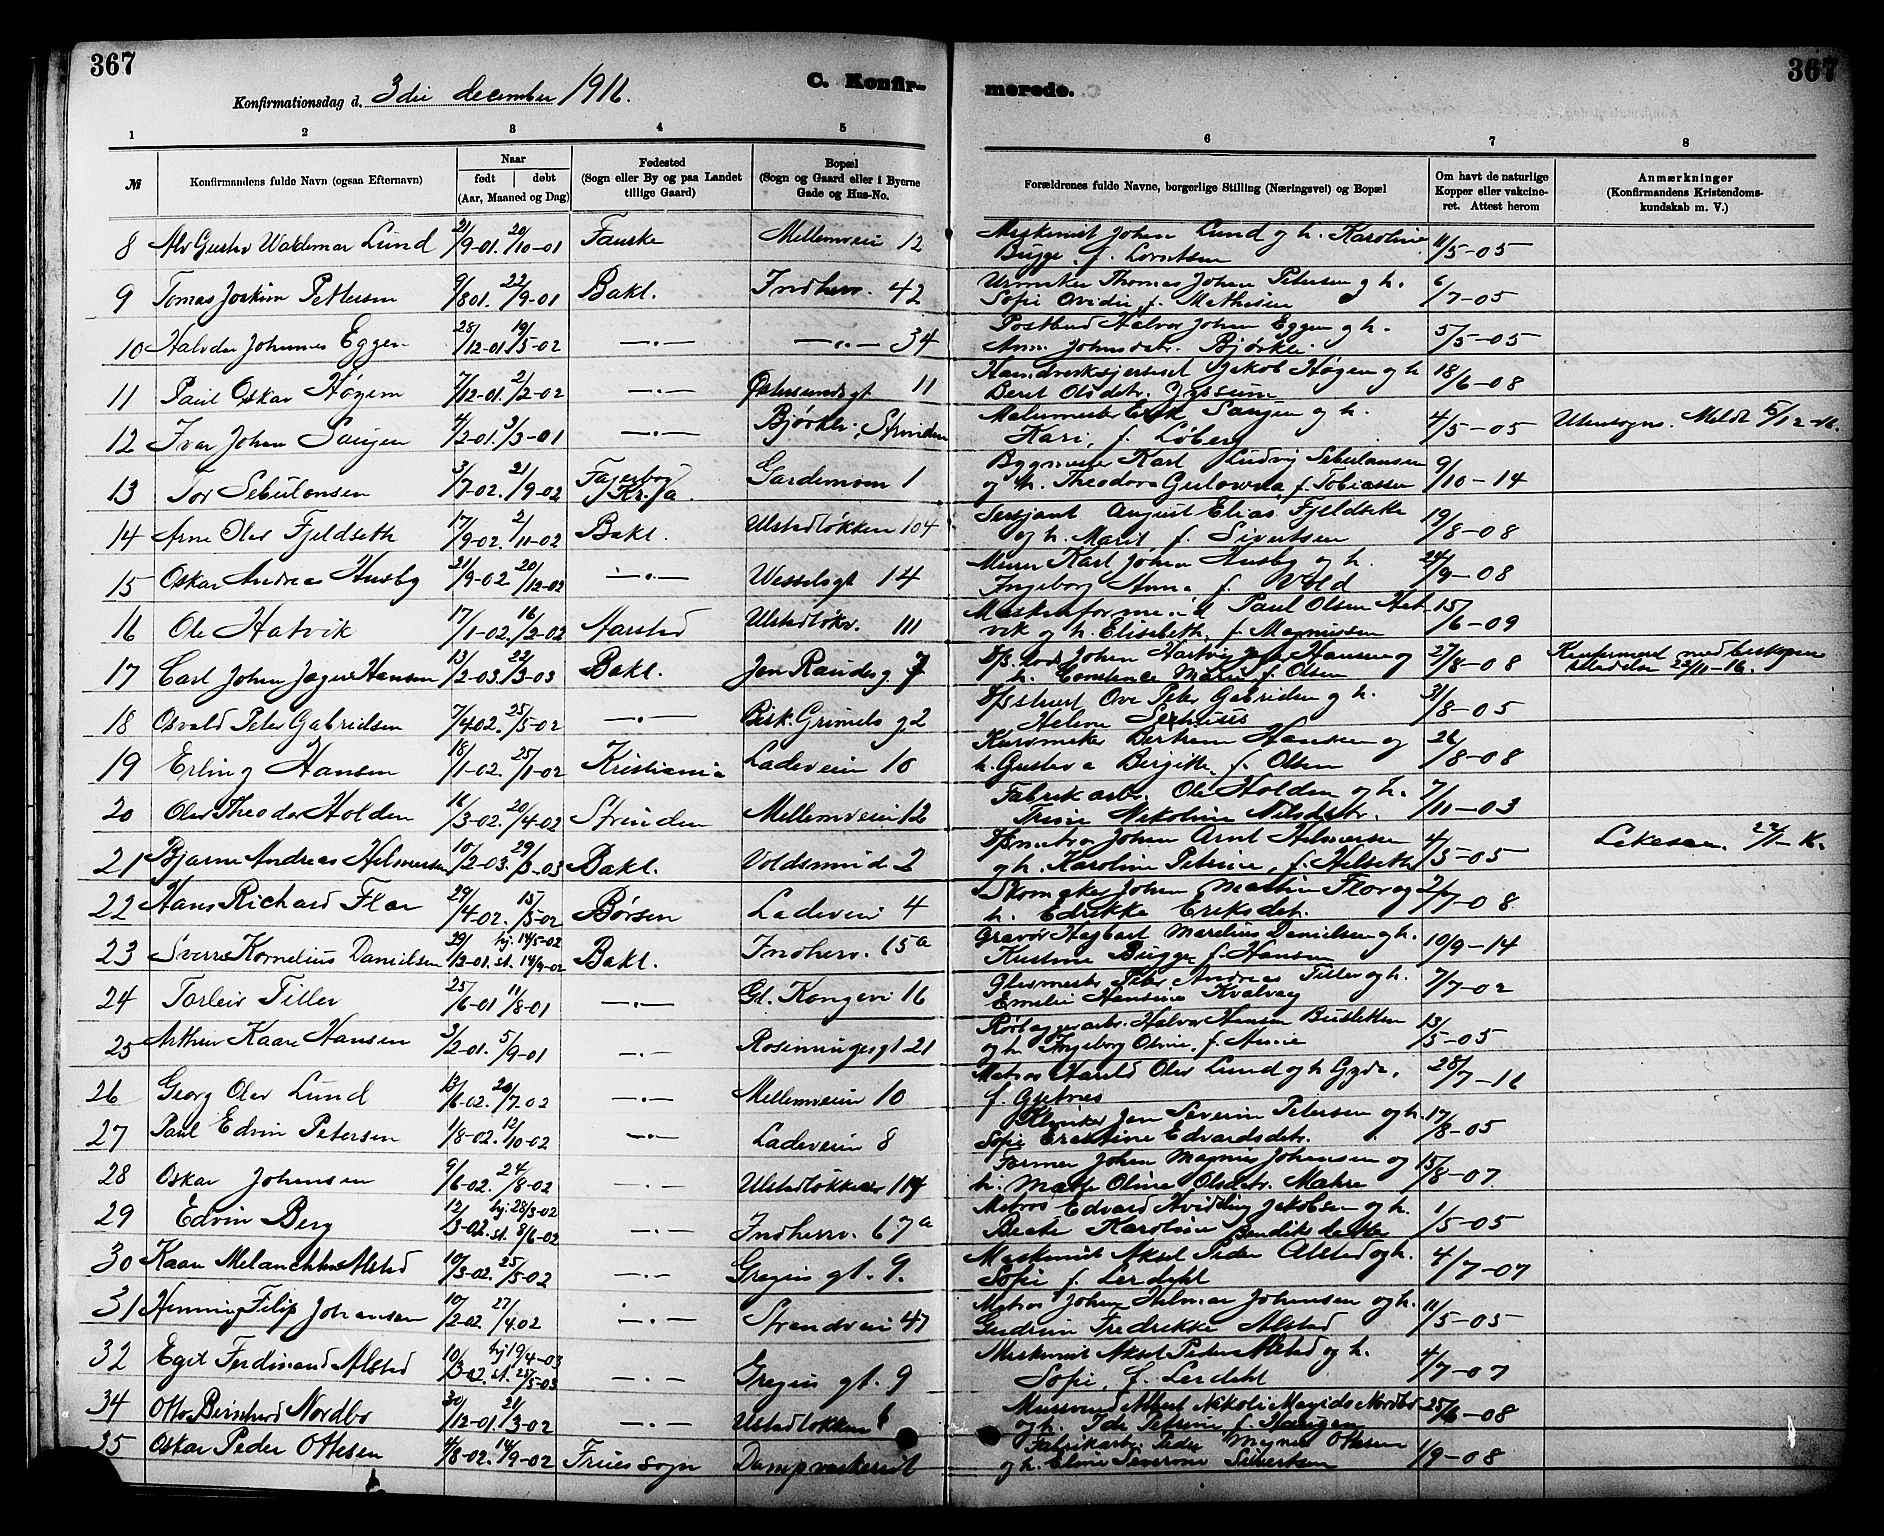 367
367
Konfirmationsdag d. 3die december 1916.
C. Konfir-
merede.
1 2 3 4 5 6 7 8
№
Konfirmandens fulde Navn (ogsaa Efternavn)
Naar
født | døbt
(Aar, Maaned og Dag)
Fødested
(Sogn eller By og paa Landet
tillige Gaard)
Bopæl
(Sogn og Gaard eller i Byerne
Gade og Hus-No.
Forældrenes fulde Navne, borgerlige Stilling (Næringsvei) og Bopæl
Om havt de naturlige
Kopper eller vakcine-
ret. Attest herom
Anmærkninger
(Konfirmandens Kristendoms-
kundskab m. V.)
8 Alv Gustav Waldemar Lund 21/9-01. 20/10-01 Fauske Mellemveien 12 Maskinist Johan Lund og h. Karoline 11/5-05
Bugge, f. Lorentsen
9 Tomas Joakim Pettersen 9/8 01. 22/9-01 Bakl. Indherv. 42 Urmaker Thomas Johan Petersen og h. 6/7-05
Sofie Ovidie f. Mathisen
10 Halvdan Johannes Eggen 28/12-01 19/5-02 —〃— —〃— 34 Postbud Halvor Johan Eggen og h. 5/5-05
Anna Johnsdatr. Bjørkli
11 Paul Oskar Høgem 7/12-01. 2/2-02 —〃— Østersundsgt 11 Jakob Høgen og h 18/6-08
Beret Olsdatr.
12 Ivar Johan Saugen 4/2-01. 3/3-01 Bjørkli, Strinden Malermester Erik Saugen og h. 4/5-05 Utensogns. Meldt 5/12-16.
Kari, f. Løberg
13 Tor Sebulonsen 3/7-02. 21/9-02 Fagerborg Kr.ja Gardemoen 1 Bygmester Karl Ludvig Sebulonsen 9/10-14
og h. Theodora f. Tobiassen
14 Arne Olav Fjeldseth 17/9-02. 2/11-02 Bakl. Ulstadløkken 104 Sersjant August Elias Fjeldseth 19/8-08
og h. Marit f. Sivertsen
15 Oskar Andreas Husby 21/9-02 20/12-02 —〃— Wesselsgt 14 Murer Karl Johan Husby og h. 24/9-08
Ingeborg Anna f. Vold
16 Ole Hatvik 17/1-02. 16/2-02 Aarstad Ulstadløkv. 111 Paul Olsen Hat 15/6-09
vik og h. Elisabeth, f. Magnussen
17 Carl Johan Jøger Hansen 13/2-03. 22/3-03 Bakl. Jon Raudesg 7 Johan Hartvig Hansen og 27/8-08 Konfirmert med biskopens
h. Constance Marie f. Olsen tilladelse 22/11-16.
18 Osvald Peter Gabrielsen 7/4 02. 25/5-02 —〃— Bisk. Grimels g 2 Ove Peter Gabrielsen og h. 31/8-05
Helene
19 Erling Hansen 18/1-02. 25/1-02 Kristiania Ladeveien 10 Kurvmaker Bertram Hansen og 26/8-08
h. Gustava Bergitte, f. Olsen
20 Olav Theodor Holden 16/3-02. 20/4-02 Strinden Mellemveien 12 Fabrikarb. Ole Holden og h. 7/11-03
Trine Nikoline Nilsdatr.
21 Bjarne Andreas Helmersen 10/2-03. 29/3-03 Bakl. Voldsmind 2 Johan Arnt Helmersen 4/5-05
og h. Karoline Petrine, f. Helseth
22 Hans Richard Flor 29/4-02. 15/5-02 Børsen Ladevei 4 Skomaker Johan Martin Flor og 2/7-08
h. Edrikke Eriksdatr.
23 Sverre Kornelius Danielsen 29/12-01. hj. 14/5-02 st. 14/9-02 Bakl. Indherv. 65a Gravør Hagbart Marelius Danielsen og h. 10/9-14
Kristine Bugge f. Hansen
24 Torleiv Tiller 25/6-01 11/8-01 —〃— Gl. Kongevei 16 Glasmester Peter Andreas Tiller og h. 7/7-02
Emilie Hansine Kvalvaag
25 Arthur Kaare Hansen 3/2-01. 5/9-01 —〃— Roseningesgt 21 Rørlæggerarb. Halvor Hansen 13/5-05
og h. Ingeborg Oline, f. Aune
26 Georg Olav Lund 13/6-02. 20/7 02 —〃— Mellemveien 10 Matros Harald Olav Lund og h Gyda, 28/7-16
f.
27 Paul Edvin Petersen 1/8-02. 12/10-02 —〃— Ladeveien 8 Klinker Jon Severin Petersen og h. 17/8-05
Sofie Erentine Edvardsdatr.
28 Oskar Johansen 9/6-02. 24/8-02 —〃— Ulstadløkken 114 Former Johan Magnus Johansen og 15/8-07
h. Marte Oline Olsdatr. Mahre
29 Edvin Berg 12/3-02. hj 28/3-02 st. 8/6-02 —〃— Indherv. 67a Matros Edvard Hvidding Jakobsen og h. 1/5-05
Beate Karoline Bendiksdatter
30 Kaare Melanchton Alstad 10/3-02. 25/5-02 —〃— Gregus gt. 9. Maskinist Aksel Peder Alstad og h. 4/7-07
Sofie f. Lerdahl
31 Henning Filip Johansen 10/2-02. 27/4 02 —〃— Strandvei 47 Matros Johan Hilmar Johansen og h. 11/5-05
Gudrun Fredrikke Alstad
32 Egil Ferdinand Alstad 10/3-02. hj 19/4-03 st. 25/5-03 —〃— Gregus gt. 9 Maskinist Aksel Peder Alstad og h. 4/7-07
Sofie, f. Lerdahl
34 Otto Bernhard Nordbø 30/12-01. 21/3-02 —〃— Ulstadløkken 6 Albert Nikolai Nordbø 25/6-08
og h. Ida Petrine f.
35 Oskar Peder Ottesen 4/8-02. 14/9-02 Frues sogn Dampvaskeriet Fabrikarb. Peder Ottesen 1/9-08
og h. Eline Severine Sivertsen